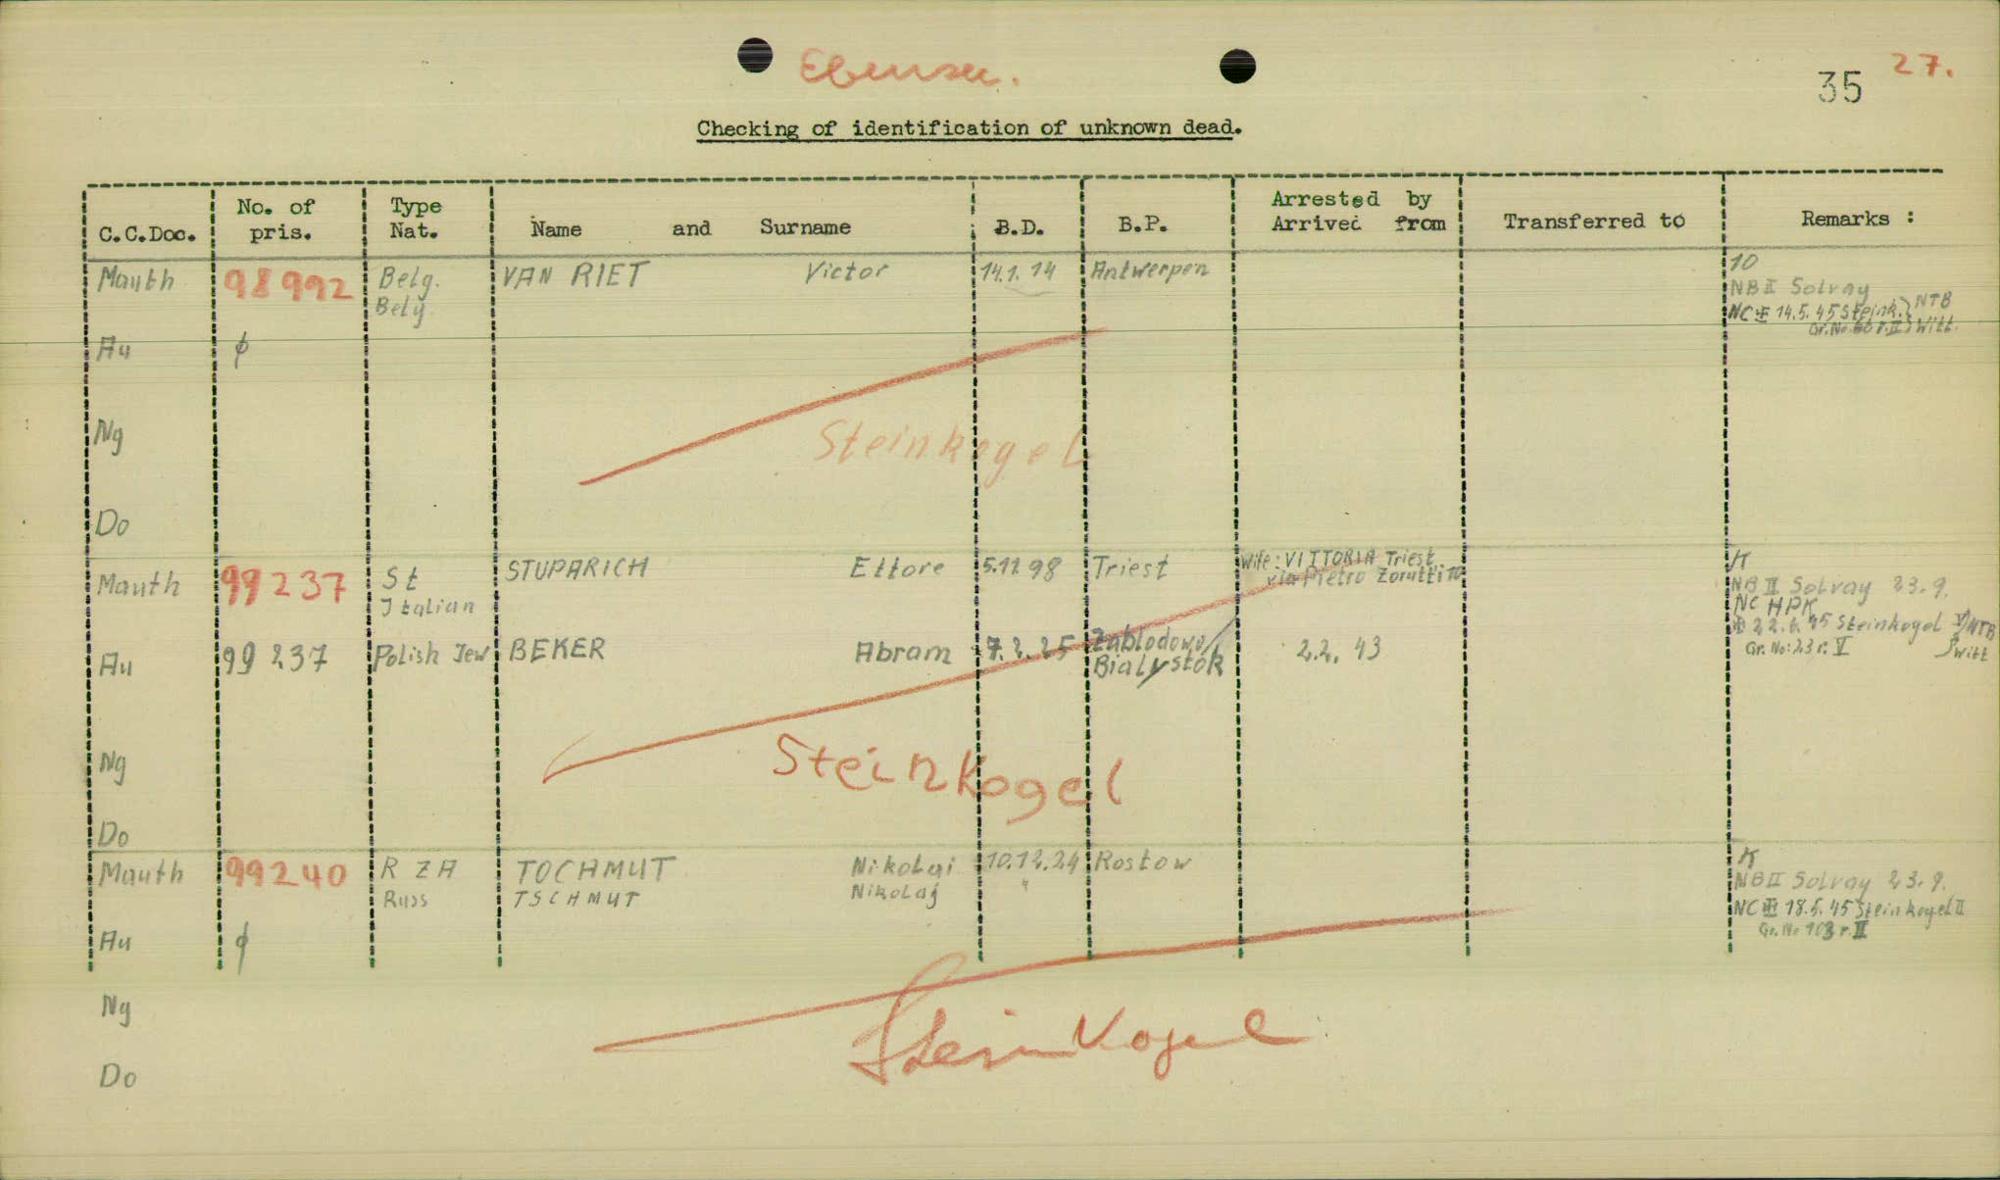 Ebensee.
35 27.
Checking of identification of unknown dead.
C.C.Doc. No. of pris. Type Nat. Name and Surname B.D. B.P. Arrested by Arrived from Transferred to Remarks :
Mauth 98992 Belg. VAN RIET Victor 14.1.14 Antwerpen 10
Belg. NB II Solvay
NC 14.5.45 Steink. NTB
Gr.No. r. II Witt.
Au ϕ
Ng Steinkogel
Do
Mauth 99237 St STUPARICH Ettore 5.11.98 Triest Wife: VITTORIA Triest, K
via Pietro Zorutti 10
Italian NB II Solvay 23.9.
NC HPK
22.6.45 Steinkogel V NTB
Gr. No: 23 r. V Witt
Au 99237 Polish Jew BEKER Abram 7.2.25 Zabludowo/ 2.2.43
Bialystok
Ng
Steinkogel
Do
Mauth 99240 R Z A TOCHMUT Nikolai 10.12.24 Rostow K
Russ TSCHMUT Nikolaj " NB II Solvay 23.9.
NC 18.5.45 Steinkogel II
Gr. No 103 r. II
Au ϕ
Ng
Steinkogel
Do